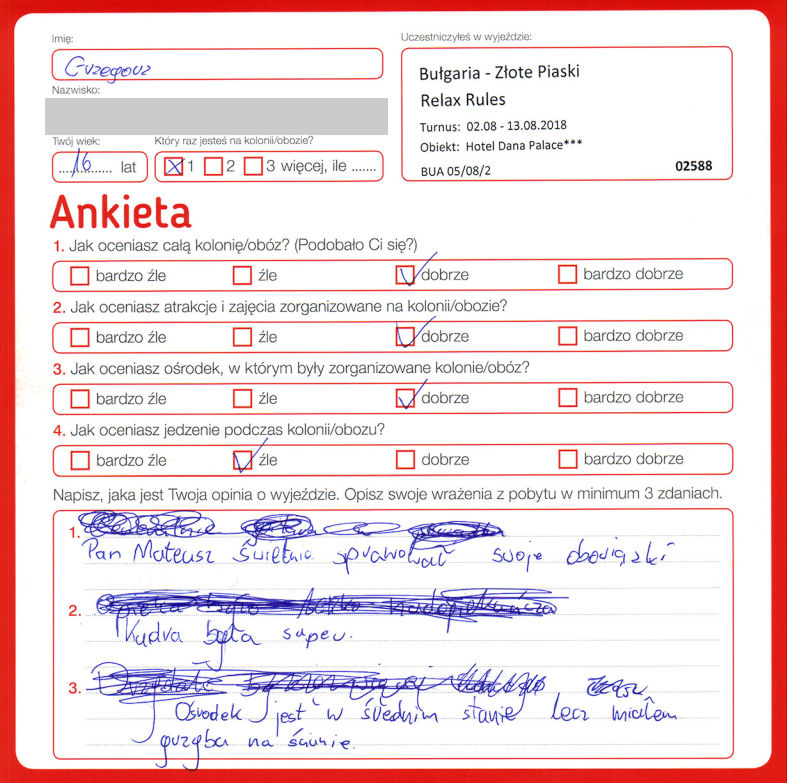 Imię:
Uczestniczyłeś w wyjeździe:
Grzegorz
Nazwisko:
Bułgaria - Złote Piaski
Relax Rules
Turnus: 02.08 - 13.08.2018
Obiekt: Hotel Dana Palace***
BUA 05/08/2
02588
Twój wiek:
Który raz jesteś na kolonii/obozie?
16 lat
1 2 3 więcej, ile .......
Ankieta
1. Jak oceniasz całą kolonię/obóz? (Podobało Ci się?)
bardzo źle źle dobrze bardzo dobrze
2. Jak oceniasz atrakcje i zajęcia zorganizowane na kolonii/obozie?
bardzo źle źle dobrze bardzo dobrze
3. Jak oceniasz ośrodek, w którym były zorganizowane kolonie/obóz?
bardzo źle źle dobrze bardzo dobrze
4. Jak oceniasz jedzenie podczas kolonii/obozu?
bardzo źle źle dobrze bardzo dobrze
Napisz, jaka jest Twoja opinia o wyjeździe. Opisz swoje wrażenia z pobytu w minimum 3 zdaniach.
1.
Pan Mateusz świetnie sprawował swoje obowiązki
2.
Kadra była super.
3.
Ośrodek jest w średnim stanie lecz miałem
grzyba na ścianie.